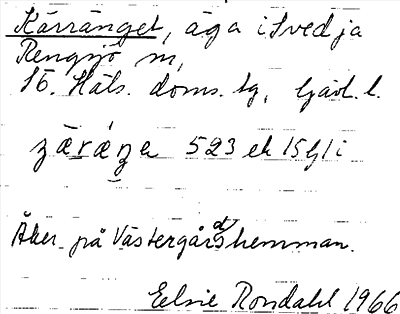 Kärränget, äga i Svedja
Rengsjö sn,
Sö. Häls. doms. tg, Gävl. l.
523 ek 15 G1 i
Åker på Västergårdshemman.
Elsie Rondahl 1966